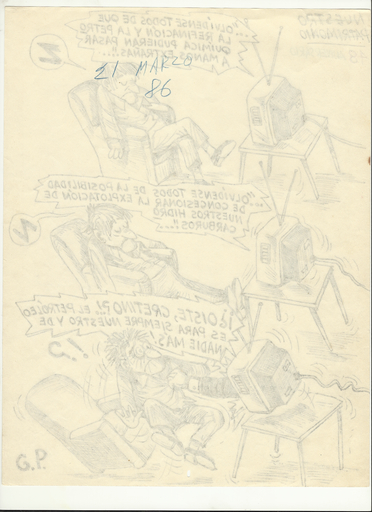 NUESTRO
PATRIMONIO
..."OLVIDENSE TODOS DE QUE
LA REFINACION Y LA PETRO
QUIMICA PUDIERAN PASAR
A MANOS EXTRAÑAS..."
Z
21 MARZO
86
..."OLVIDENSE TODOS DE LA POSIBILIDAD
DE CONCESIONAR LA EXPLOTACION DE
NUESTROS HIDRO
CARBUROS..."
Z
¡¿OISTE, CRETINO?! EL PETROLEO
ES PARA SIEMPRE NUESTRO Y DE
NADIE MAS
G.P.